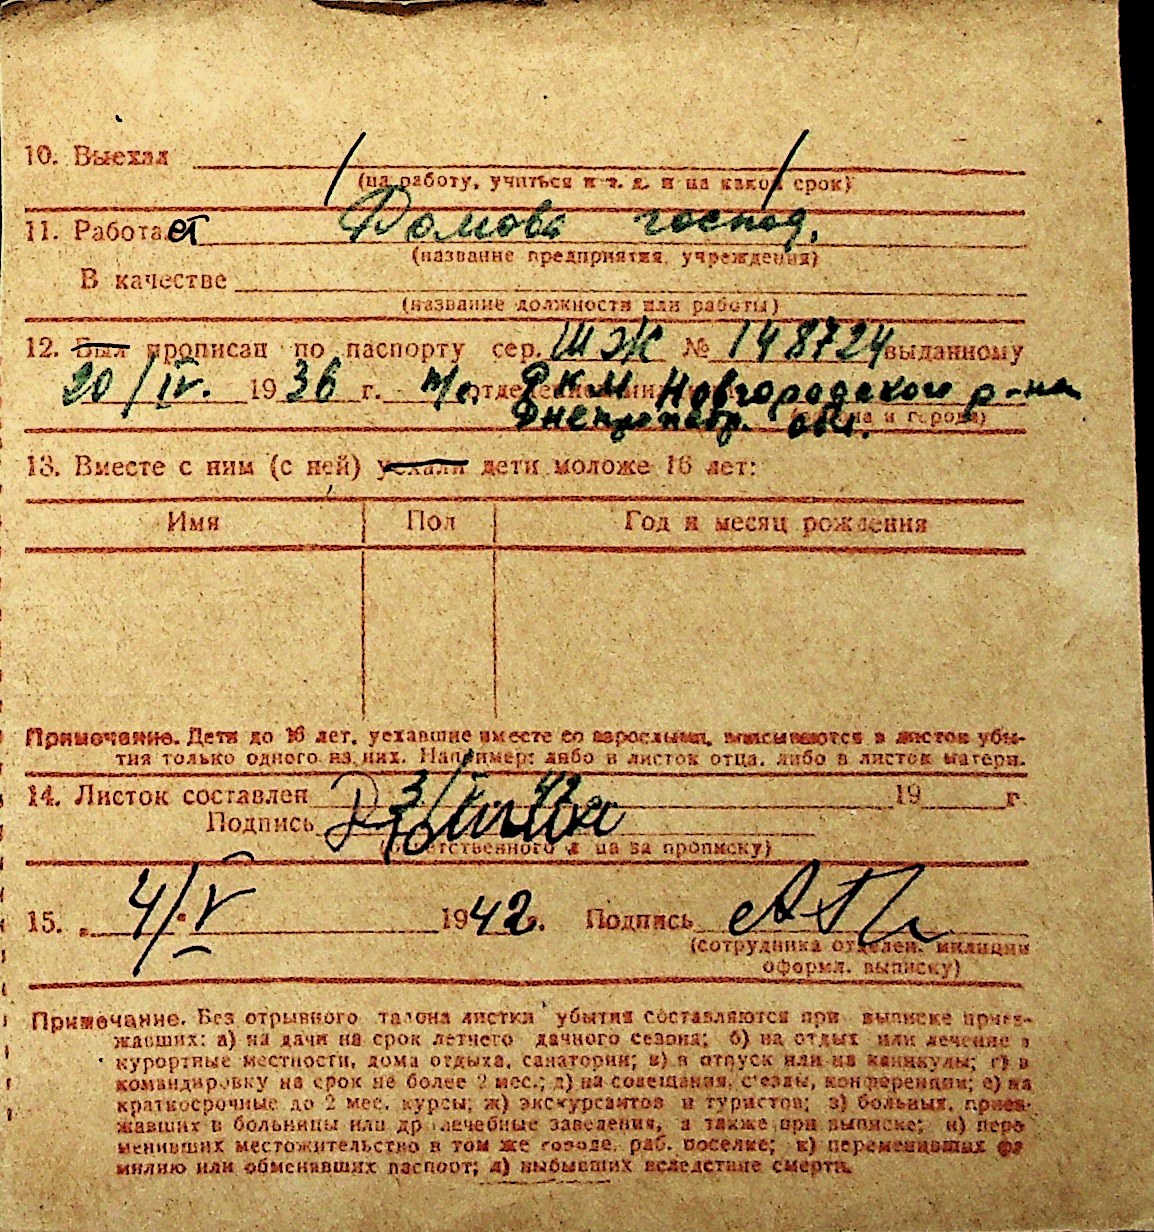 10. Выехал
(на работу, учиться и т. д. и на какой срок)
11. Работает Домова господ.
(название предприятия, учреждения)
В качестве
(название должности или работы)
12. Был прописан по паспорту сер. ШЭЖ № 148724 выданному
20/IV. 1936 г. отделением РКМ Новгородского р-на
Днепропетр. обл. (района и города)
13. Вместе с ним (с ней) уехали дети моложе 16 лет:
Имя Пол Год и месяц рождения
Примечание. Дети до 16 лет, уехавшие вместе со взрослыми, вписываются в листок убы-
тия только одного из них. Например: либо в листок отца, либо в листок матери.
14. Листок составлен 3/V 42 19 г.
Подпись
(ответственного лица за прописку)
15. 4/V 1942 г. Подпись
(сотрудника отделен. милиции
оформл. выписку)
Примечание. Без отрывного талона листки убытия составляются при выписке приез-
жавших: а) на дачи на срок летнего дачного сезона; б) на отдых или лечение в
курортные местности, дома отдыха, санатории; в) в отпуск или на каникулы; г) в
командировку на срок не более 2 мес.; д) на совещания, съезды, конференции; е) на
краткосрочные до 2 мес. курсы; ж) экскурсантов и туристов; з) больных, приез-
жавших в больницы или др лечебные заведения, а также при выписке; и) пере
менивших местожительство в том же городе, раб. поселке; к) переменивших фа
милию или обменявших паспорт; л) выбывших вследствие смерти.